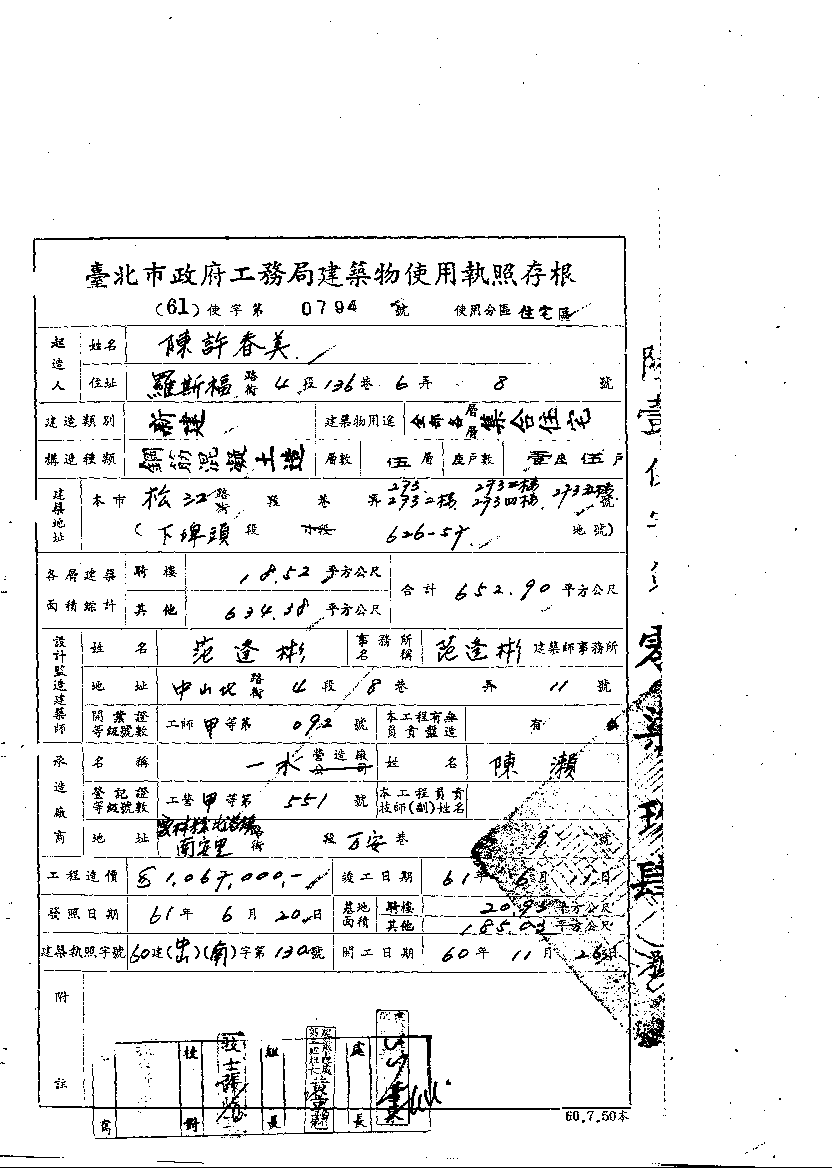 臺北市政府工務局建築物使用執照存根
(61)使字第 0794 號 使用分區 住宅區
起造人 姓名 陳許春美
住址 羅斯福 路街 4 段 136 巷 6 弄 8 號
建造類別 新建 建築物用途 全部各層層集合住宅
構造種類 鋼筋混凝土造 層數 伍層 座戶數 壹座伍戶
建築地址 本市 松江 路街 段 巷 弄 295 293二樓 293三樓 293四樓 293五樓 號
(下埤頭 段 小段 626-57 地號)
各層建築面積綜計 騎樓 18.52 平方公尺 合計 652.90 平方公尺
其他 634.38 平方公尺
設計監造建築師 姓名 范逢彬 事務所名稱 范逢彬 建築師事務所
地址 中山北 路街 4 段 8 巷 弄 11 號
開業證等級號數 工師甲等第 092 號 本工程有無負責監造 有
承造廠商 名稱 一水 營造廠公司 姓名 陳瀨
登記證等級號數 工營甲等第 551 號 本工程負責技師(副)姓名
地址 雲林縣北港鎮南安里 路街 段 万安 巷 9 號
工程造價 1,067,000,- 竣工日期 61年 6月 11日
發照日期 61年 6月 20日 基地面積 騎樓 20.93 平方公尺
其他 185.03 平方公尺
建築執照字號 60建(出)(南)字第130號 開工日期 60年 11月 26日
附註
校對
組長
處長
60.7.50本